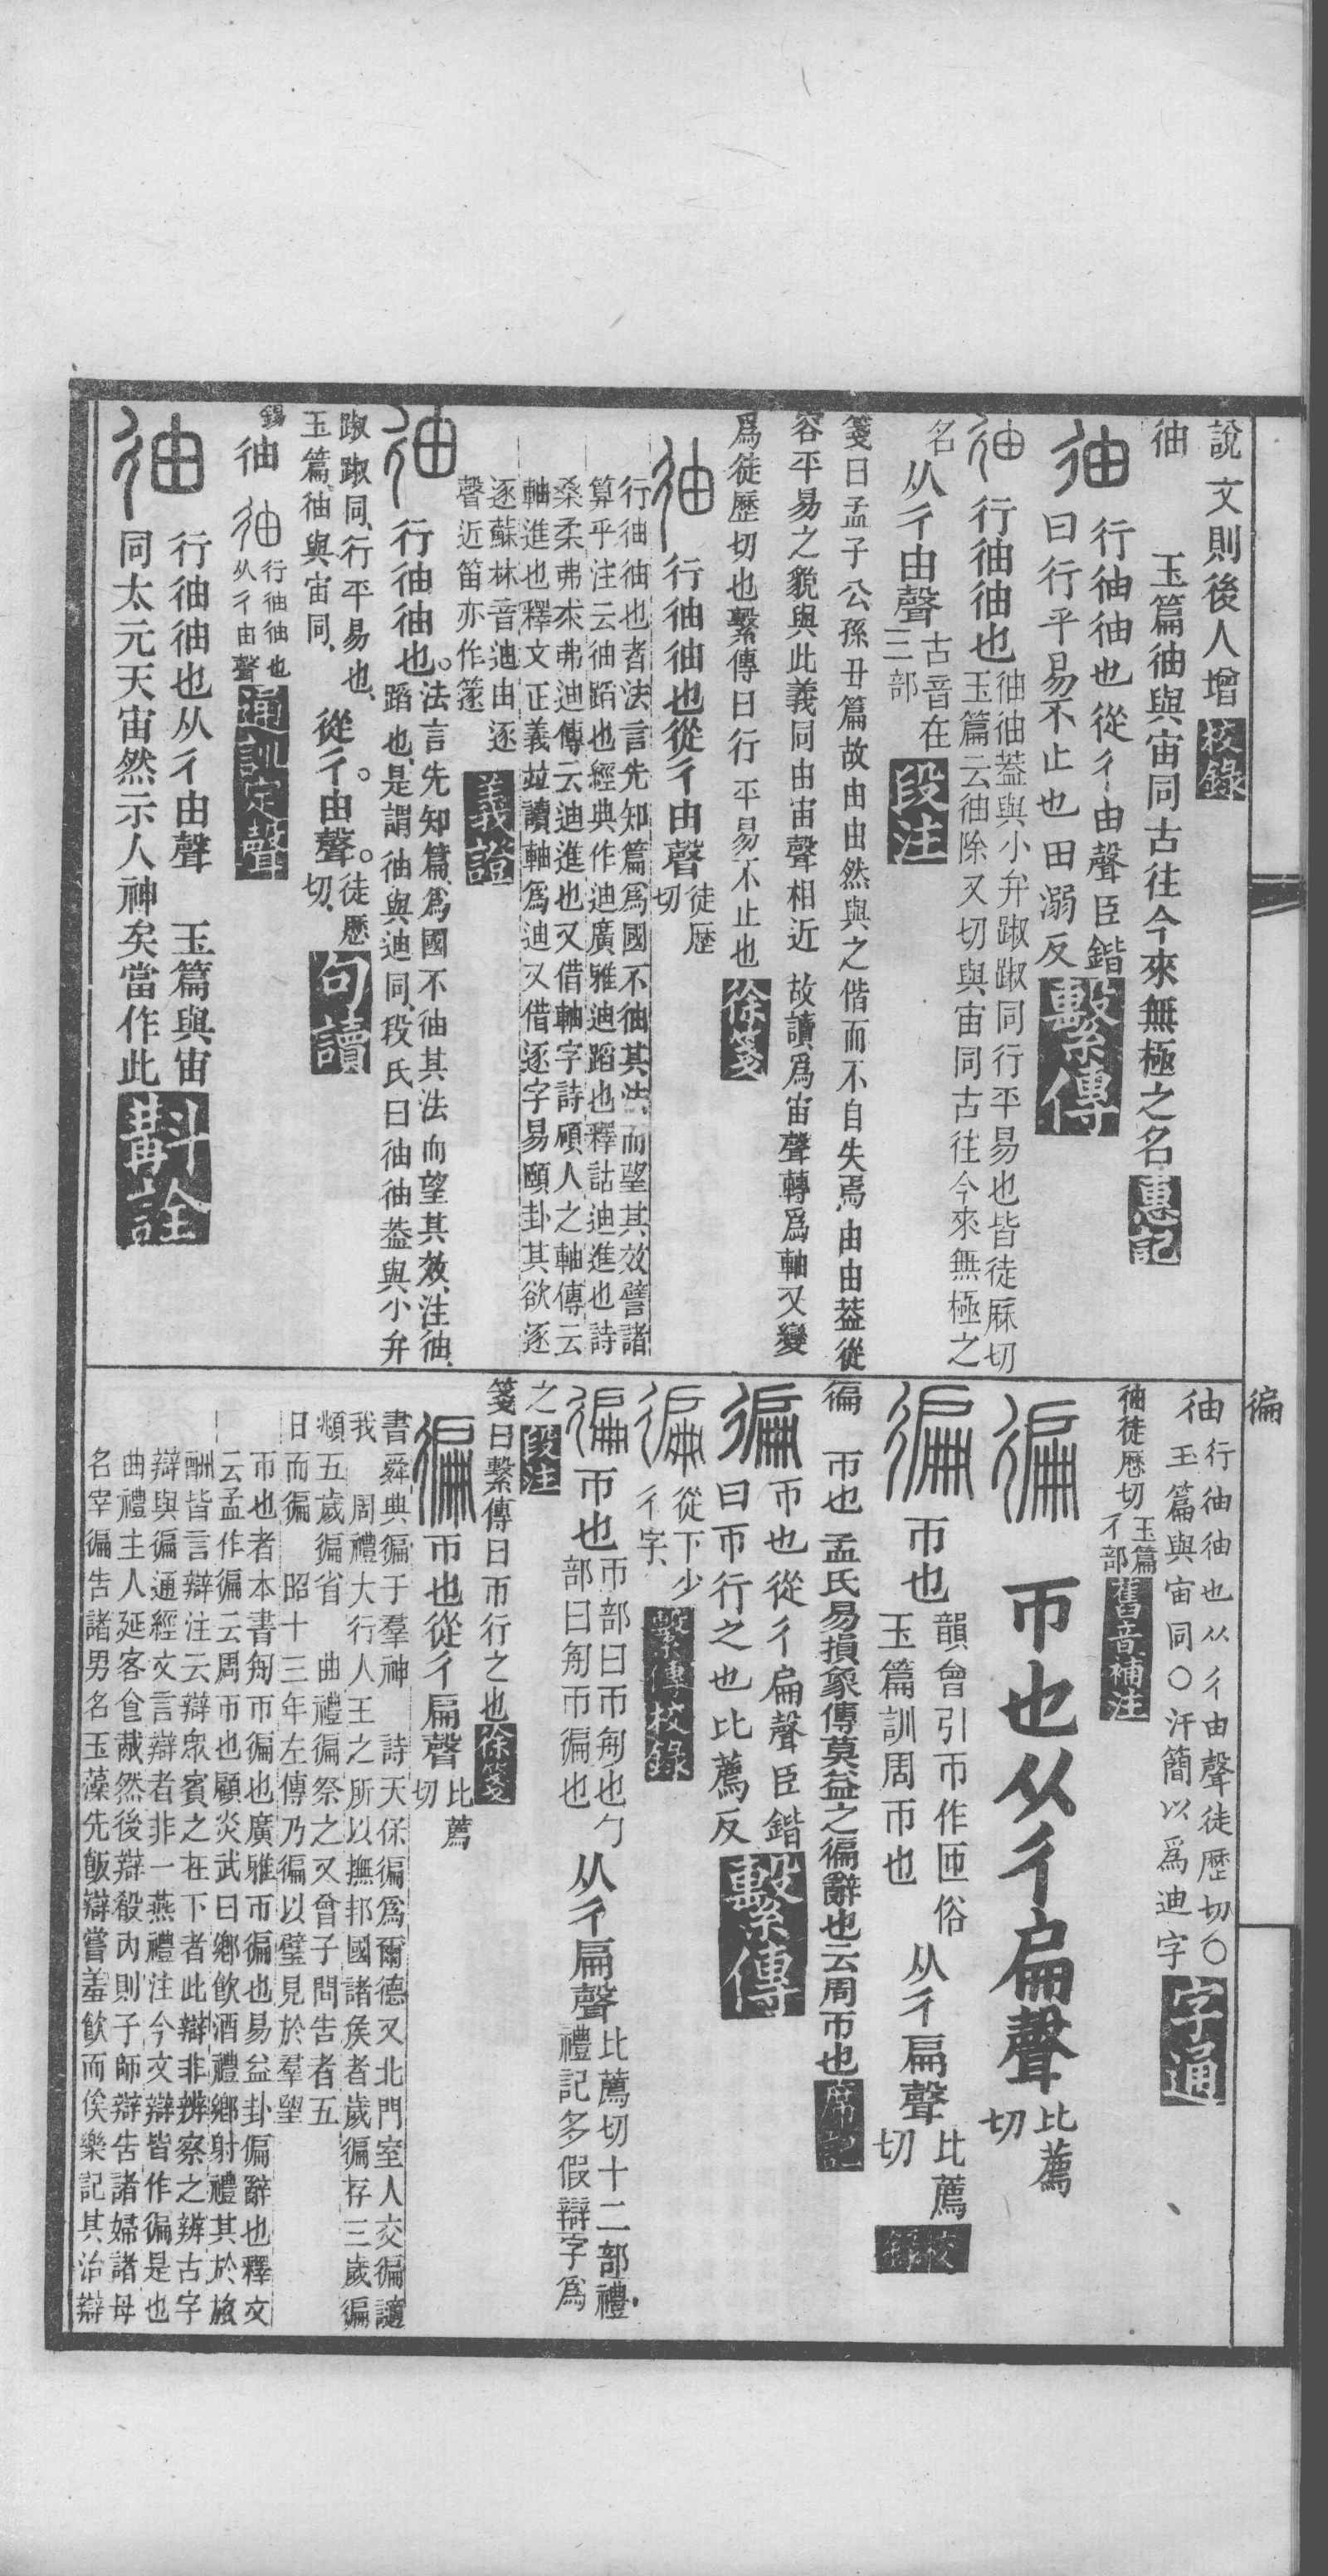 說文則後人增校錄
㣙 玉篇㣙與宙同古往今來無極之名惠記
㣙 行㣙㣙也從彳由聲臣鍇
曰行平易不止也田溺反繫傳
㣙 行㣙㣙也㣙㣙蓋與小弁踧踧同行平易也皆徒厤切
玉篇云㣙除又切與宙同古往今來無極之
名从彳由聲古音在
三部段注
箋曰孟子公孫丑篇故由由然與之偕而不自失焉由由葢從
容平易之貌與此義同由宙聲相近 故讀爲宙聲轉爲軸又變
爲徒歷切也繫傳曰行平易不止也徐箋
㣙 行㣙㣙也從彳由聲徒歷
切
行㣙㣙也者法言先知篇爲國不㣙其法而望其效譬諸
算乎注云㣙蹈也經典作迪廣雅迪蹈也釋詁迪進也詩
桑柔弗求弗迪傳云迪進也又借軸字詩碩人之軸傳云
軸進也釋文正義竝讀軸爲迪又借逐字易頤卦其欲逐
逐蘇林音迪由逐
聲近笛亦作篴義證
㣙 行㣙㣙也。法言先知篇、爲國不㣙其法而望其效、注㣙、
蹈也、是謂㣙與迪同、段氏曰㣙㣙葢與小弁
踧踧同、行平易也、
玉篇、㣙與宙同、從彳。由聲。徒歷
切、句讀
錫㣙 㣙行㣙㣙也
从彳由聲通訓定聲
㣙 行㣙㣙也从彳由聲 玉篇與宙
同太元天宙然示人神矣當作此斠詮
㣙行㣙㣙也从彳由聲徒歷切〇
玉篇與宙同〇汗簡以爲迪字字通
㣙徒歷切玉篇
彳部舊音補注
徧
徧 帀也从彳扁聲比薦
切
徧 帀也韻會引帀作匝俗
玉篇訓周帀也从彳扁聲比薦
切校錄
徧 帀也 孟氏易損象傳莫益之徧辭也云周帀也席記
徧 帀也從彳扁聲臣鍇
曰帀行之也比薦反繫傳
徧從下少
彳字、繫傳校錄
徧 帀也帀部曰帀匊也勹
部曰匊帀徧也从彳扁聲比薦切十二部禮、
禮記多假辯字爲
之段注
箋曰繫傳曰帀行之也徐箋
徧 帀也從彳扁聲比薦
切
書舜典徧于羣神 詩天保徧爲爾德又北門室人交徧讁
我 周禮大行人王之所以撫邦國諸矦者歲徧存三歲徧
頫五歲徧省 曲禮徧祭之又曾子問告者五
日而徧 昭十三年左傳乃徧以璧見於羣望
帀也者本書匊帀徧也廣雅帀徧也易益卦偏辭也釋文
云孟作徧云周帀也顧炎武曰鄉飮酒禮鄉射禮其於旅
酬皆言辯注云辯眾賓之在下者此辯非辨察之辨古字
辯與徧通經文言辯者非一燕禮注今文辯皆作徧是也
曲禮主人延客食胾然後辯殽內則子師辯告諸婦諸母
名宰徧告諸男名玉藻先飯辯嘗羞飮而俟樂記其治辯